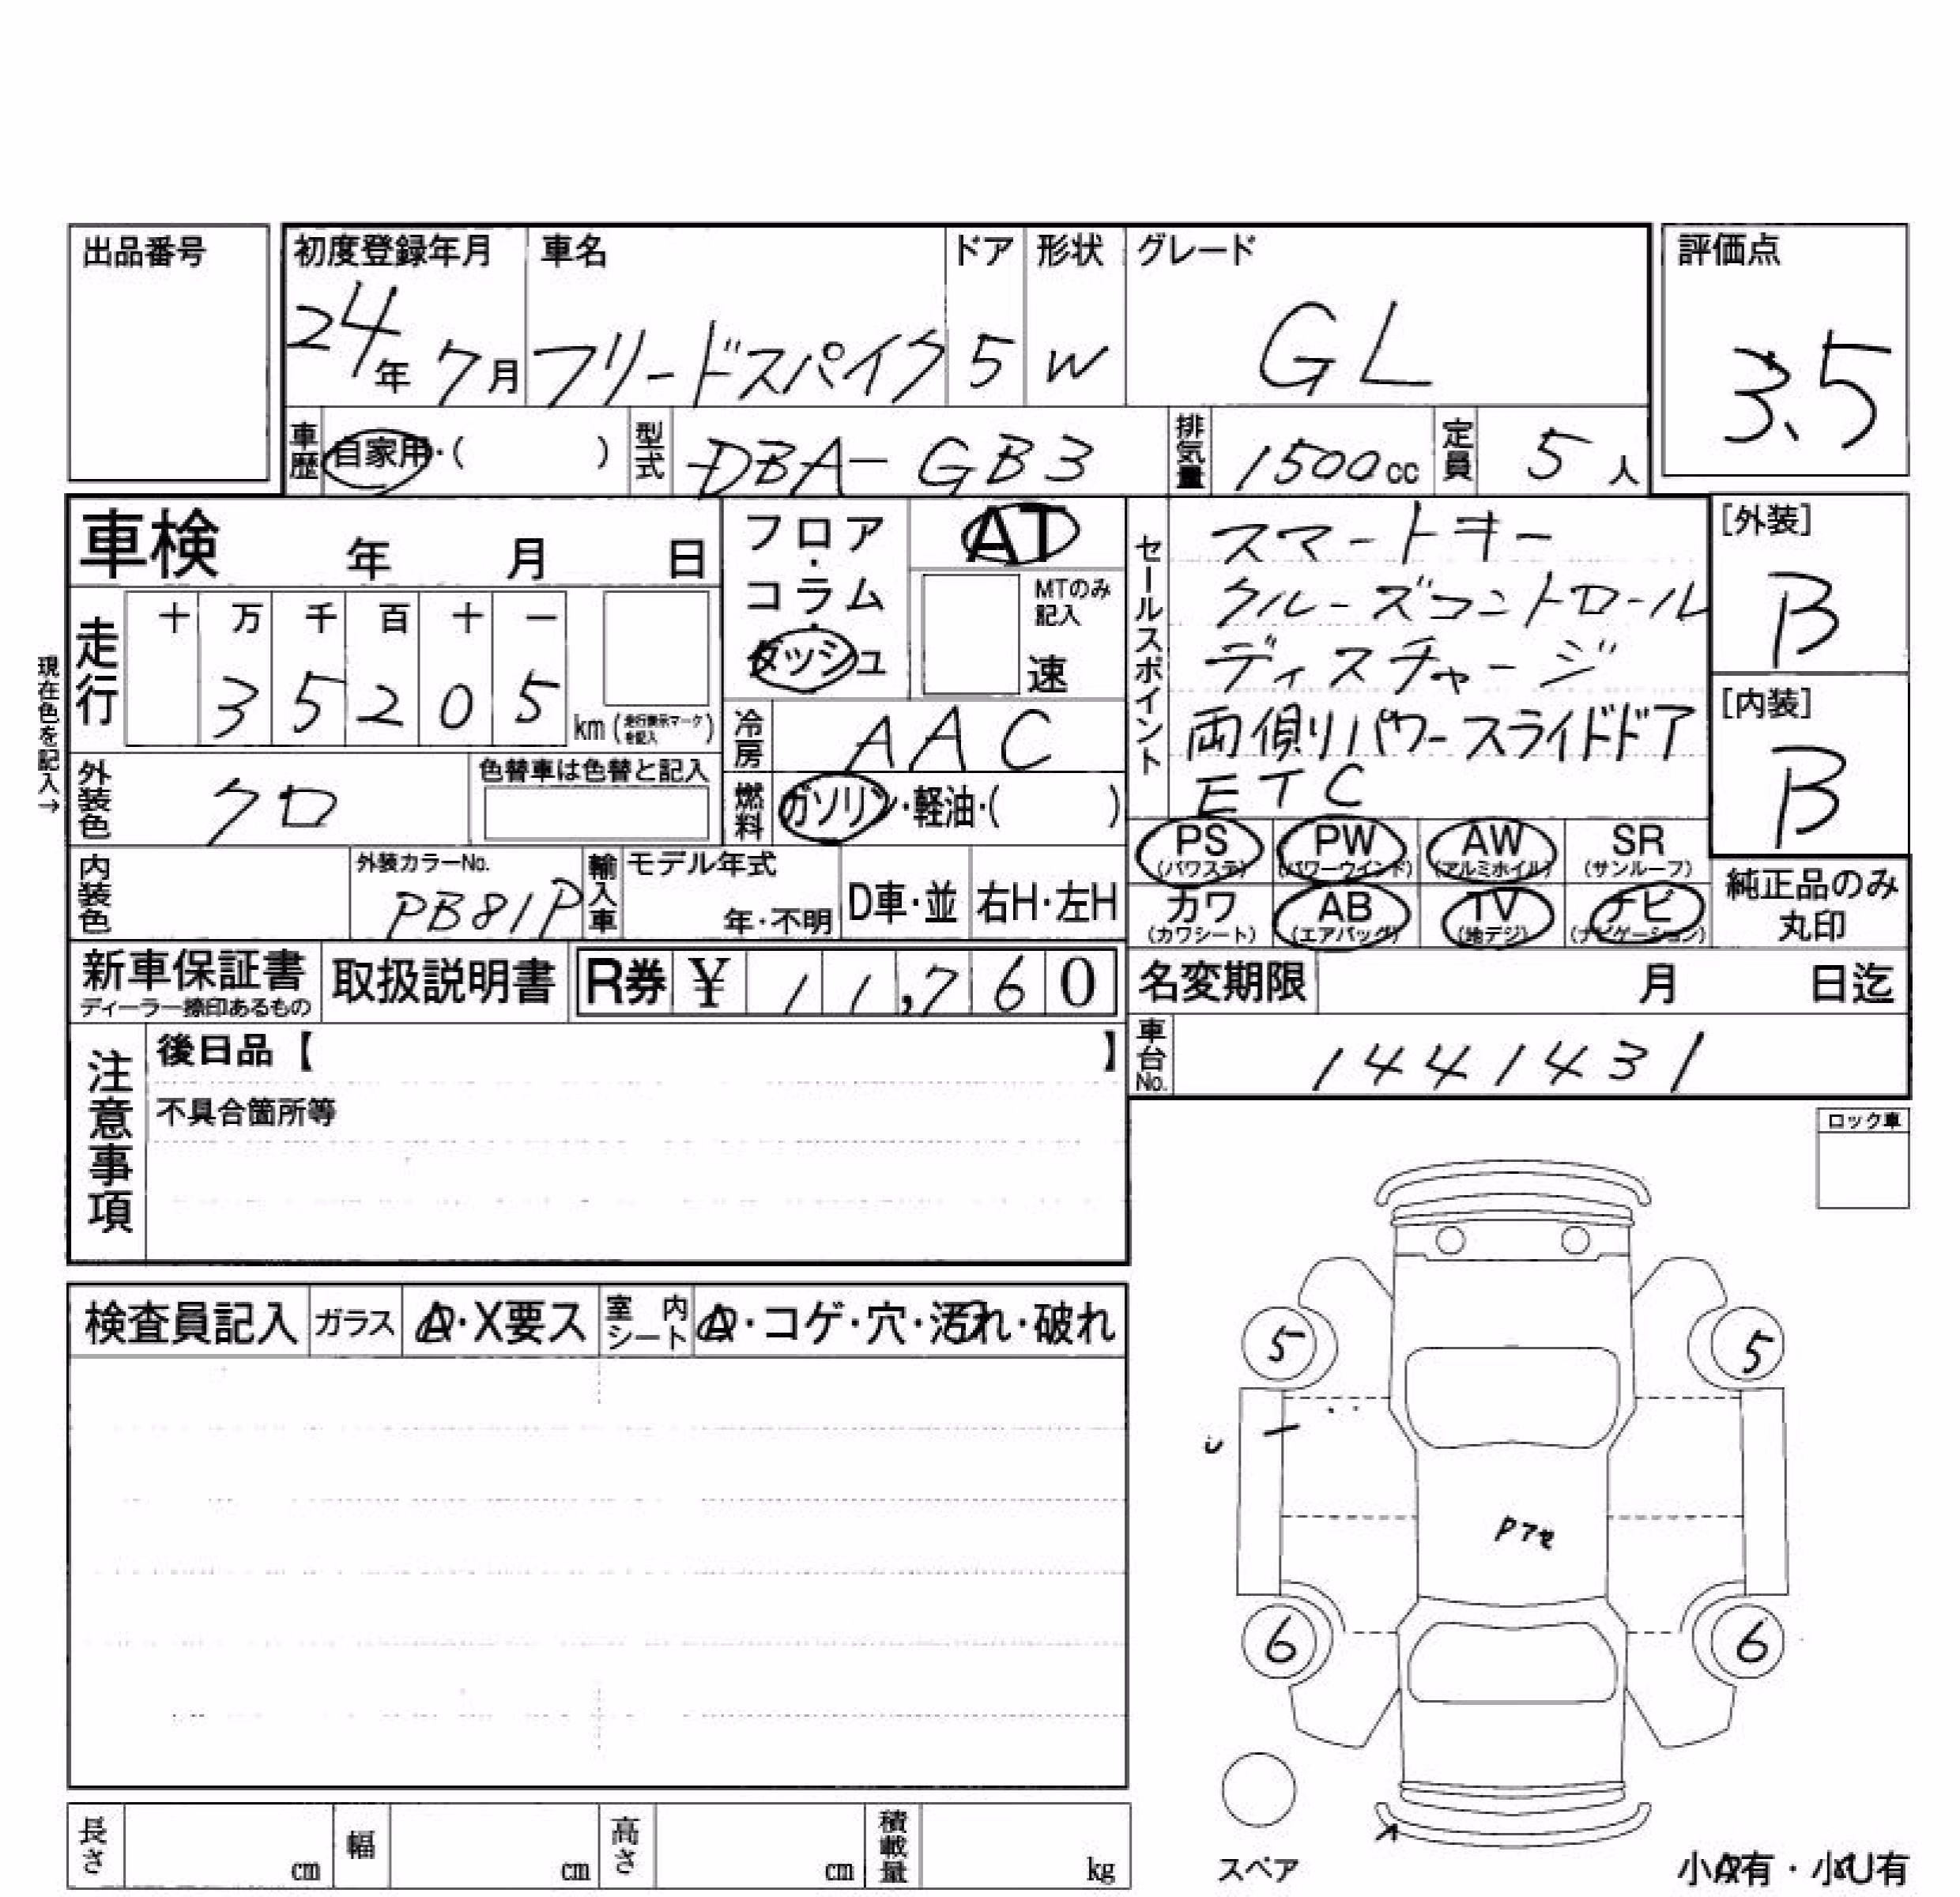 出品番号
初度登録年月 車名 ドア 形状 グレード 評価点
24年 7月 フリードスパイク 5 W GL 3.5
車歴 自家用・( ) 型式 DBA-GB3 排気量 1500cc 定員 5人
車検 年 月 日
フロア・コラム・ダッシュ
AT
MTのみ記入
速
走行 十 万 千 百 十 一
3 5 2 0 5 km (走行表示マークを記入)
現在色を記入→
冷房 AAC
燃料 ガソリン・軽油・( )
外装色 クロ 色替車は色替と記入
内装色 外装カラーNo. PB81P 輸入車 モデル年式 年・不明 D車・並 右H・左H
セールスポイント
スマートキー
クルーズコントロール
ディスチャージ
両側パワースライドドア
ETC
[外装] B
[内装] B
PS (パワステ) PW (パワーウインド) AW (アルミホイル) SR (サンルーフ)
カワ (カワシート) AB (エアバッグ) TV (地デジ) ナビ (ナビゲーション)
純正品のみ丸印
新車保証書 ディーラー捺印あるもの 取扱説明書 R券 ¥ 11,760
名変期限 月 日迄
車台No. 1441431
注意事項
後日品【 】
不具合箇所等
ロック車
検査員記入 ガラス A・X要ス 室内シート A・コゲ・穴・汚れ・破れ
5 5
6 6
スペア
小A有・小U有
長さ cm 幅 cm 高さ cm 積載量 kg